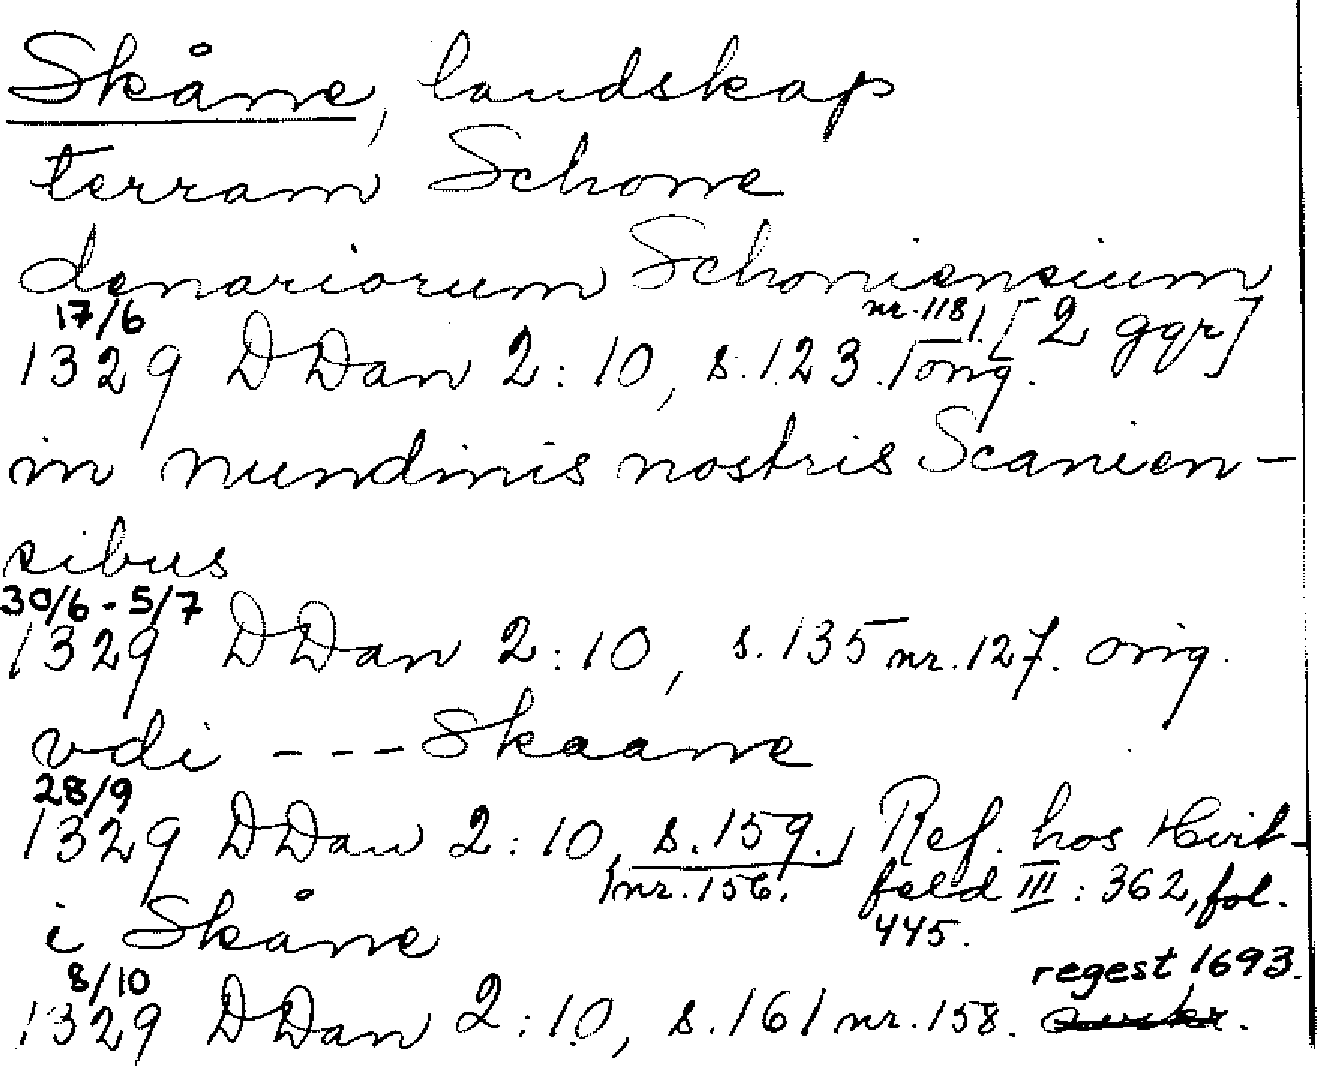 Skåne, landskap
terram Schone
denariorum Schoniensium
17/6 nr. 118 [2 ggr]
1329 DDan 2:10, s. 123. orig.
in nundinis nostris Scanien-
sibus
30/6 - 5/7
1329 DDan 2:10, s. 135 nr. 127. orig.
vdi --- Skaane
28/9
1329 DDan 2:10, s. 159. Ref. hos Hvit-
nr. 156. feld III: 362, fol.
445.
i Skåne
8/10 regest 1693.
1329 DDan 2:10, s. 161 nr. 158.